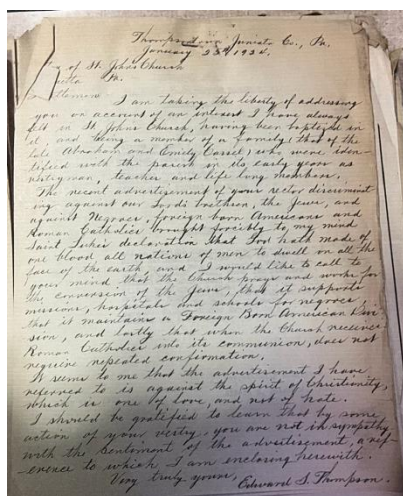 Thompsontown, Juniata Co., Pa.
January 23d 1924.
of St. Johns Church
Pa.
I am taking the liberty of addressing
you on account of an interest I have always
felt in St. Johns Church, having been baptized in
it, and being a member of a family, that of the
late Abraham and Emily Cassel, who were iden-
tified with the parish in its early years as
vestryman, teacher and life long members.
The recent advertisement of your rector discriminat
ing against our Lord's brethren, the Jews, and
against Negroes, foreign born Americans and
Roman Catholics brought forcibly to my mind
Saint Luke's declaration that God hath made of
one blood all nations of men to dwell on all the
face of the earth, and I would like to call to
your mind that the Church prays and works for
the conversion of the Jews, that it supports
missions, hospitals and schools for negroes,
that it maintains a Foreign Born American Divi-
sion, and lastly that when the Church receives
Roman Catholics into its communion, does not
require repeated confirmation.
It seems to me that the advertisement I have
referred to is against the spirit of Christianity,
which is one of love, and not of hate.
I should be gratified to learn that by some
action of your vestry, you are not in sympathy
with the sentiment of the advertisement, a ref-
erence to which I am enclosing herewith.
Very truly yours,
Edward S. Thompson.